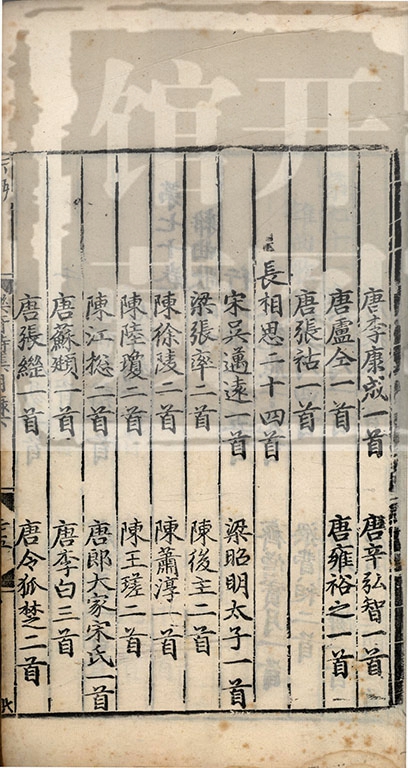 唐李康成一首　唐辛弘智一首
唐盧仝一首　唐雍裕之一首
唐張祜一首
長相思二十四首
宋吳邁遠一首　梁昭明太子一首
梁張率二首　陳後主二首
陳徐陵二首　陳蕭淳一首
陳陸瓊二首　陳王瑳二首
陳江緫二首　唐郎大家宋氏一首
唐蘇頲一首　唐李白三首
唐張繼一首　唐令狐楚二首